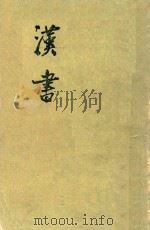 漢書
mtoou.info